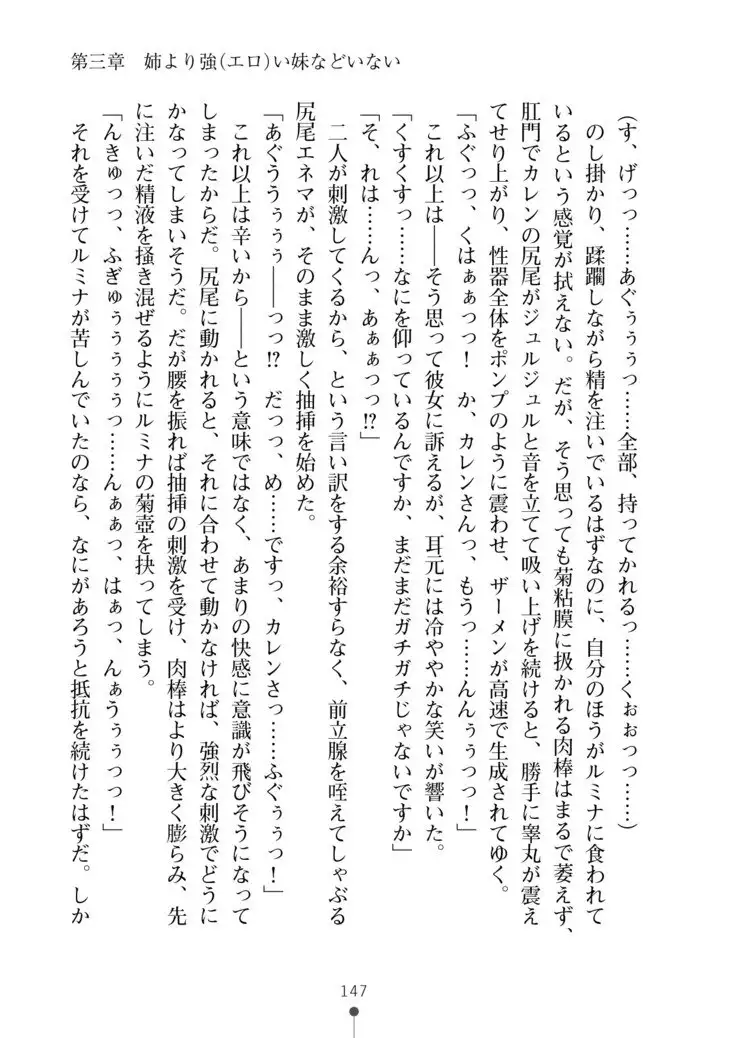 第三章　姉より強(エロ)い妹などいない
(す、げっっ……あぐぅぅぅっ……全部、持ってかれるっ……くぉぉっっ……)
のし掛かり、蹂躙しながら精を注いでいるはずなのに、自分のほうがルミナに食われて
いるという感覚が拭えない。だが、そう思っても菊粘膜に扱かれる肉棒はまるで萎えず、
肛門でカレンの尻尾がジュルジュルと音を立てて吸い上げを続けると、勝手に睾丸が震え
てせり上がり、性器全体をポンプのように震わせ、ザーメンが高速で生成されてゆく。
「ふぐっっ、くはぁぁっっ！　か、カレンさんっ、もうっ……んんぅぅっっ！」
これ以上は――そう思って彼女に訴えるが、耳元には冷ややかな笑いが響いた。
「くすくすっ……なにを仰っているんですか、まだまだガチガチじゃないですか」
「そ、れは……んっ、あぁぁっっ⁉」
二人が刺激してくるから、という言い訳をする余裕すらなく、前立腺を咥えてしゃぶる
尻尾エネマが、そのまま激しく抽挿を始めた。
「あぐううぅぅぅ――っっ⁉　だっっ、め……ですっ、カレンさっ……ふぐぅぅっ！」
これ以上は辛いから――という意味ではなく、あまりの快感に意識が飛びそうになって
しまったからだ。尻尾に動かれると、それに合わせて動かなければ、強烈な刺激でどうに
かなってしまいそうだ。だが腰を振れば抽挿の刺激を受け、肉棒はより大きく膨らみ、先
に注いだ精液を掻き混ぜるようにルミナの菊壺を抉ってしまう。
「んきゅっっ、ふぎゅぅぅぅぅっ……んぁぁっ、はぁっ、んぁうぅぅっっ！」
それを受けてルミナが苦しんでいたのなら、なにがあろうと抵抗を続けたはずだ。しか
147